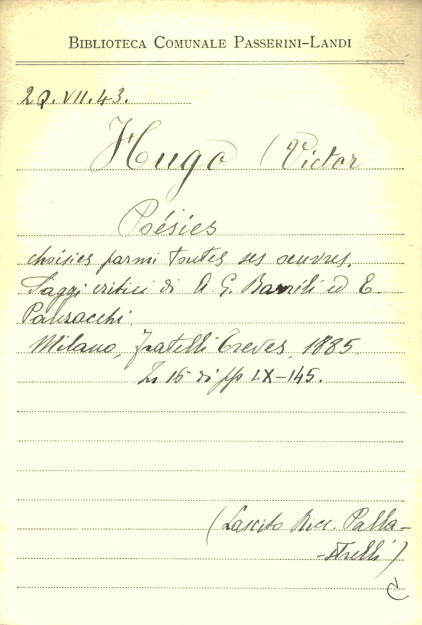 BIBLIOTECA COMUNALE PASSERINI-LANDI
2Q.VII.43.
Hugo (Victor
Poésies
choisies parmi toutes ses oeuvres.
Saggi critici di A. G. Barrili ed E.
Panzacchi.
Milano, Fratelli Treves, 1885.
In 16 di pp LX-145.
(Lascito Palla-
-strelli)